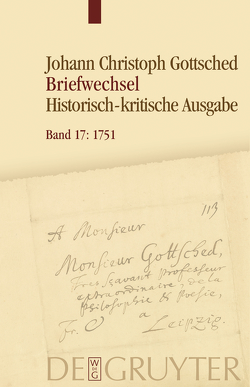 Johann Christoph Gottsched
Briefwechsel
Historisch-kritische Ausgabe
Band 17: 1751
113
A Monsieur
Monsieur Gottsched,
Tres savant Professeur
extraordinaire, de la
philosophie & Poesie,
Fr. à Leipzig.
DE GRUYTER
DE
G